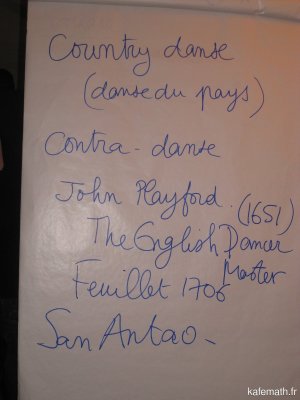 Country danse
(danse du pays)
Contra-danse
John Playford (1651)
The English Dancer
Master
Feuillet 1706
San Antao -
kafemath.fr